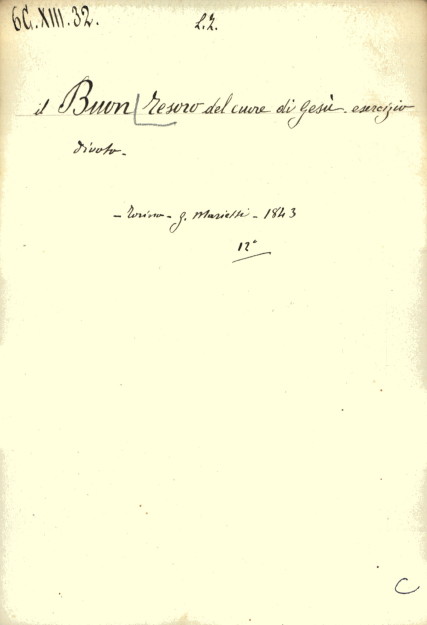 6C.XIII.32.
L.Z.
il Buon Tesoro del cuore di Gesù - esercizio
divoto -
- Torino - G. Marietti - 1843
12°
C